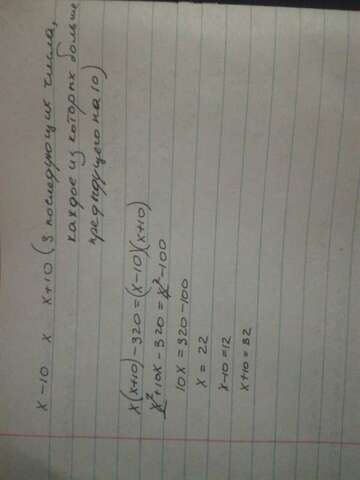 x-10 x x+10 (3 последующих числа,
каждое из которых больше
предыдущего на 10)
x(x+10)-320=(x-10)(x+10)
x²+10x-320=x²-100
10x=320-100
x=22
x-10=12
x+10=32